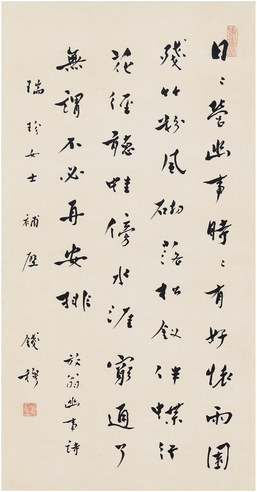 日〻營幽事時〻有好懷雨園
殘竹粉風砌落松釵伴蝶行
花徑聽蛙傍水涯窮通了
無謂不必再安排 放翁幽事詩
瑞玲女士 補壁 錢穆